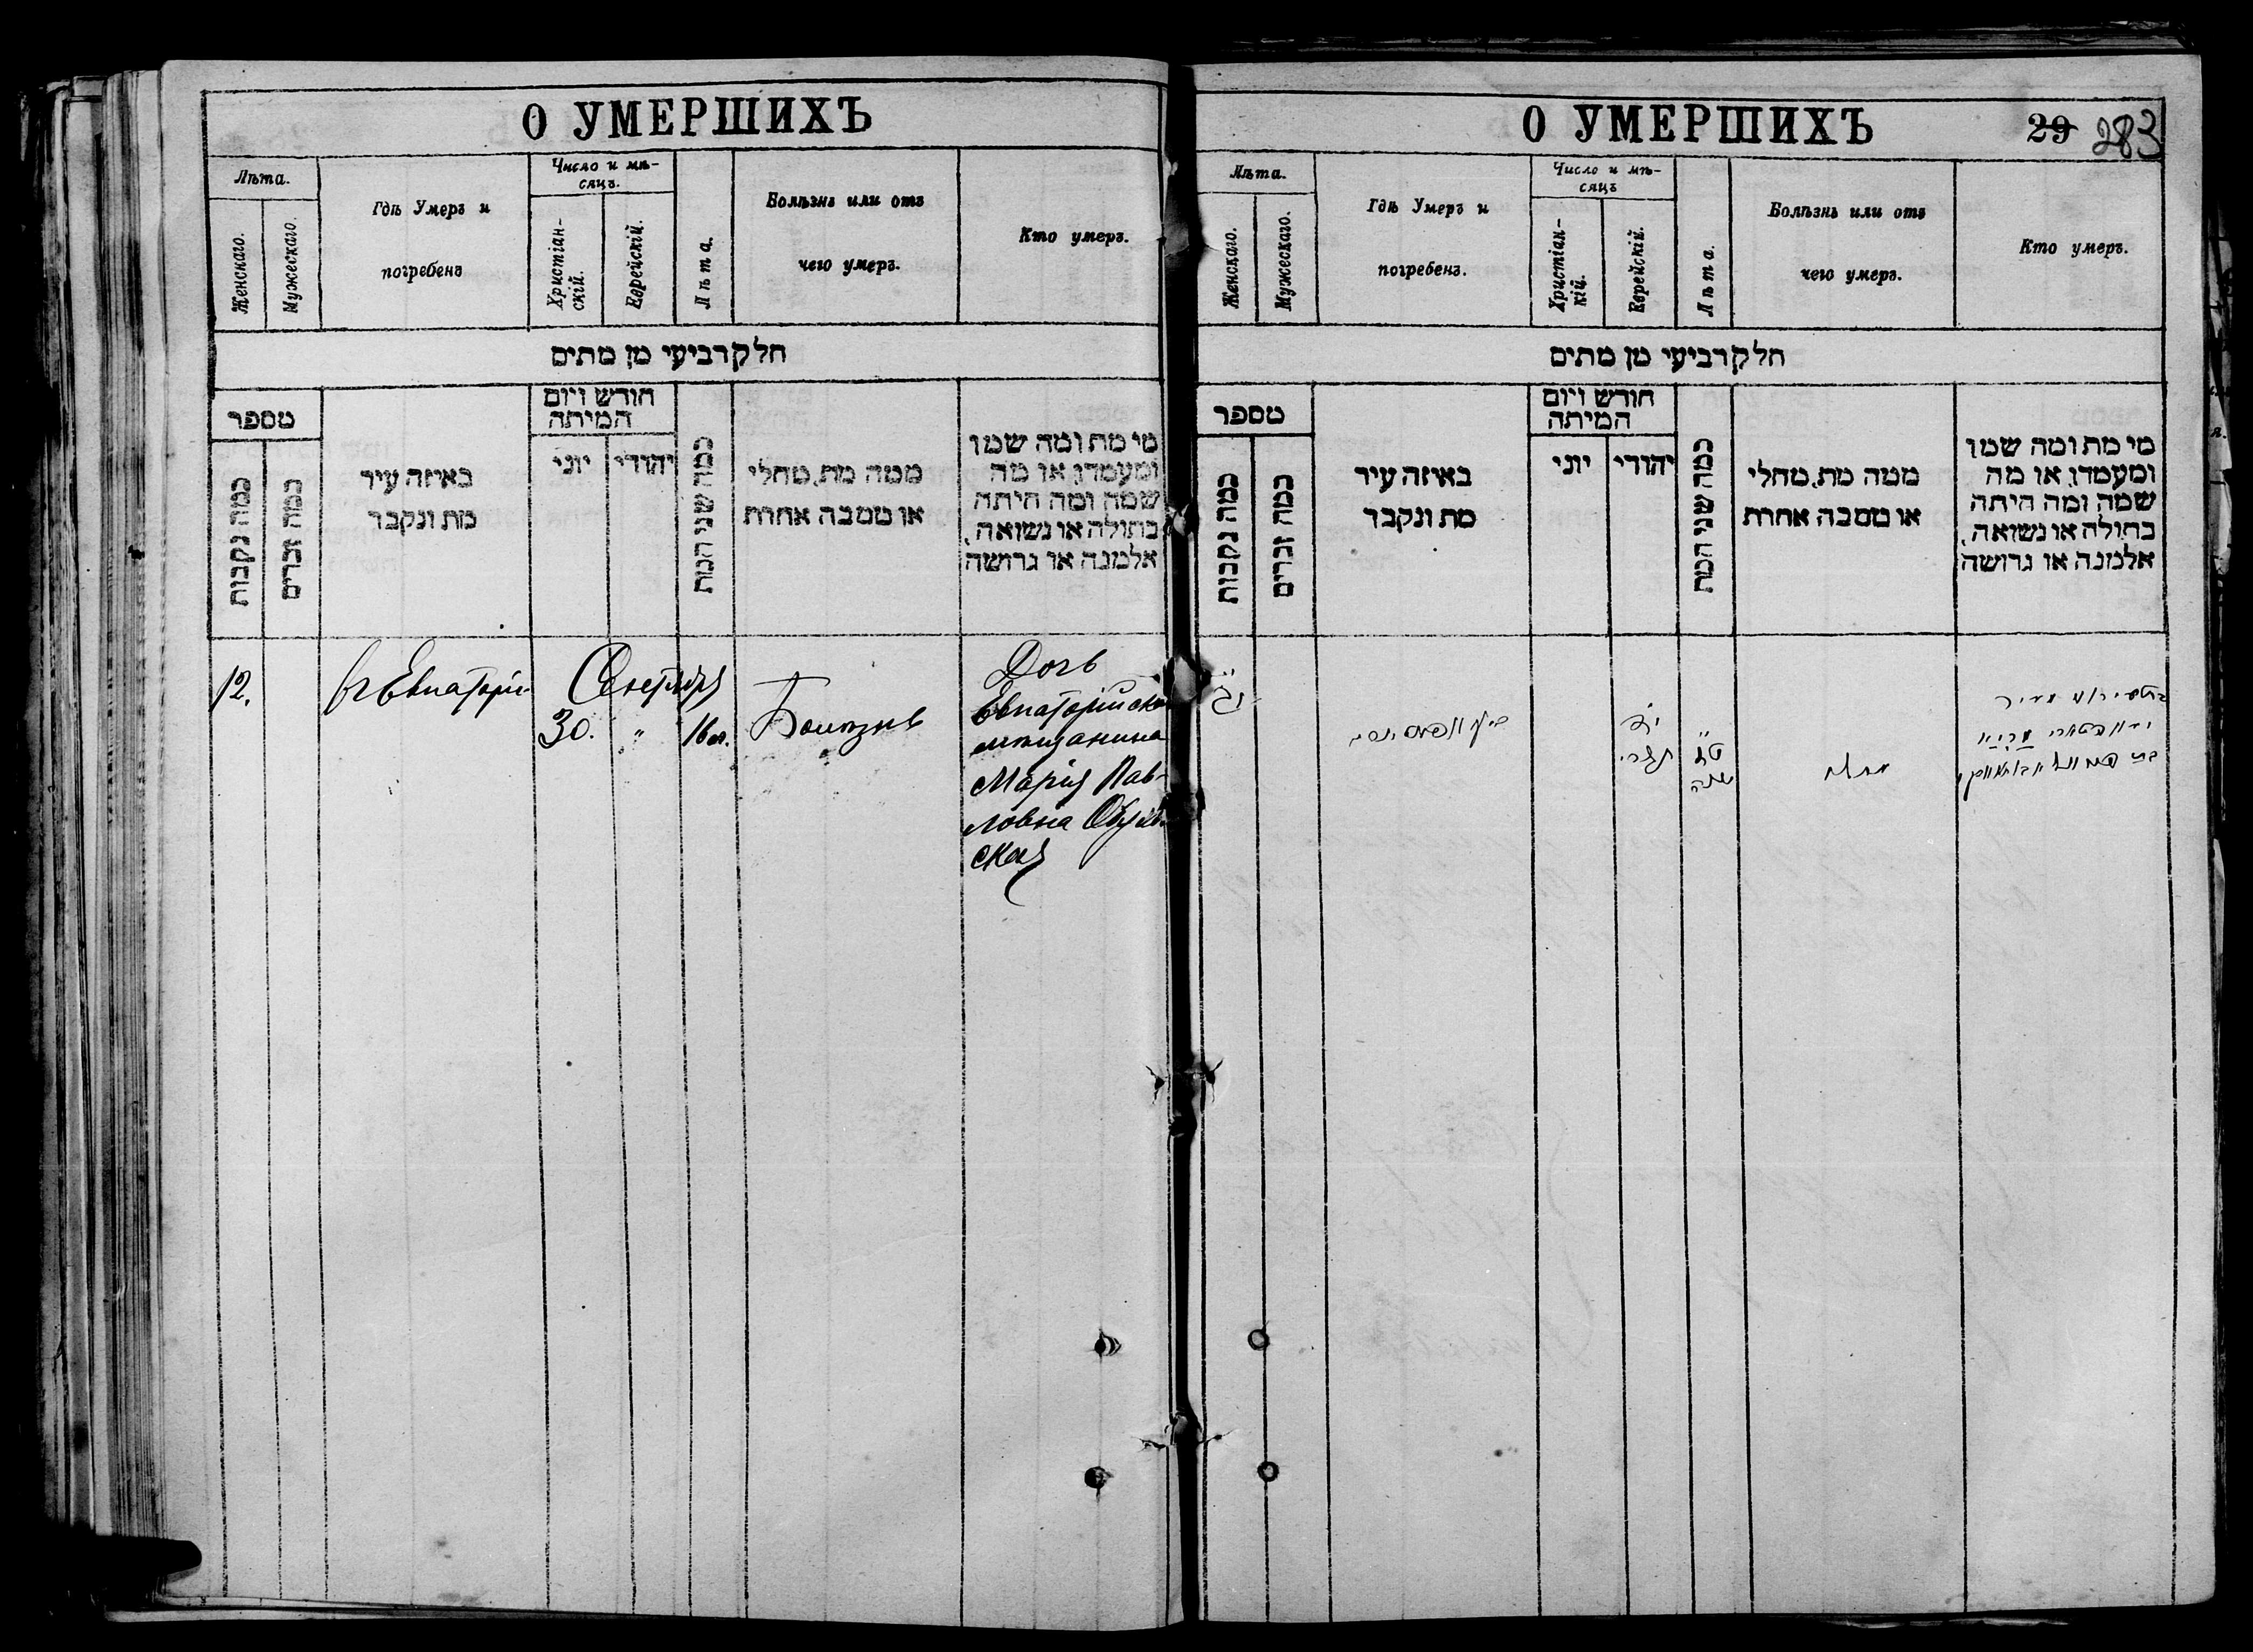 О УМЕРШИХЪ
Лѣта.
Женскаго.
Мужескаго.
Гдѣ Умеръ и
погребенъ
Число и мѣ-
сяцъ.
Христіан-
скій.
Еврейскій.
Лѣта.
Болѣзнь или отъ
чего умеръ.
Кто умеръ.
חלק רביעי מן מתים
מספר
כמה נקבות
כמה זכרים
באיזה עיר
מת ונקבר
חודש ויום
המיתה
יוני
יהודי
כמה שני המת
ממה מת, מחלי
או מסבה אחרת
מי מת ומה שמו
ומעמדו, או מה
שמה ומה היתה
בתולה או נשואה,
אלמנה או גרושה
12.
Сентября
30.
"
16 л.
Болѣзнь
Дочь
Евпаторійска
мѣщанина
Марія Пав-
ловна
ская
О УМЕРШИХЪ
29 283
Лѣта.
Женскаго.
Мужескаго.
Гдѣ Умеръ и
погребенъ.
Число и мѣ-
сяцъ
Христіан-
кій.
Еврейскій.
Лѣта.
Болѣзнь или отъ
чего умеръ.
Кто умеръ.
חלק רביעי מן מתים
מספר
כמה נקבות
כמה זכרים
באיזה עיר
מת ונקבר
חודש ויום
המיתה
יוני
יהודי
כמה שני המת
ממה מת, מחלי
או מסבה אחרת
מי מת ומה שמו
ומעמדו, או מה
שמה ומה היתה
בתולה או נשואה,
אלמנה או גרושה
תשרי
שנה
בת